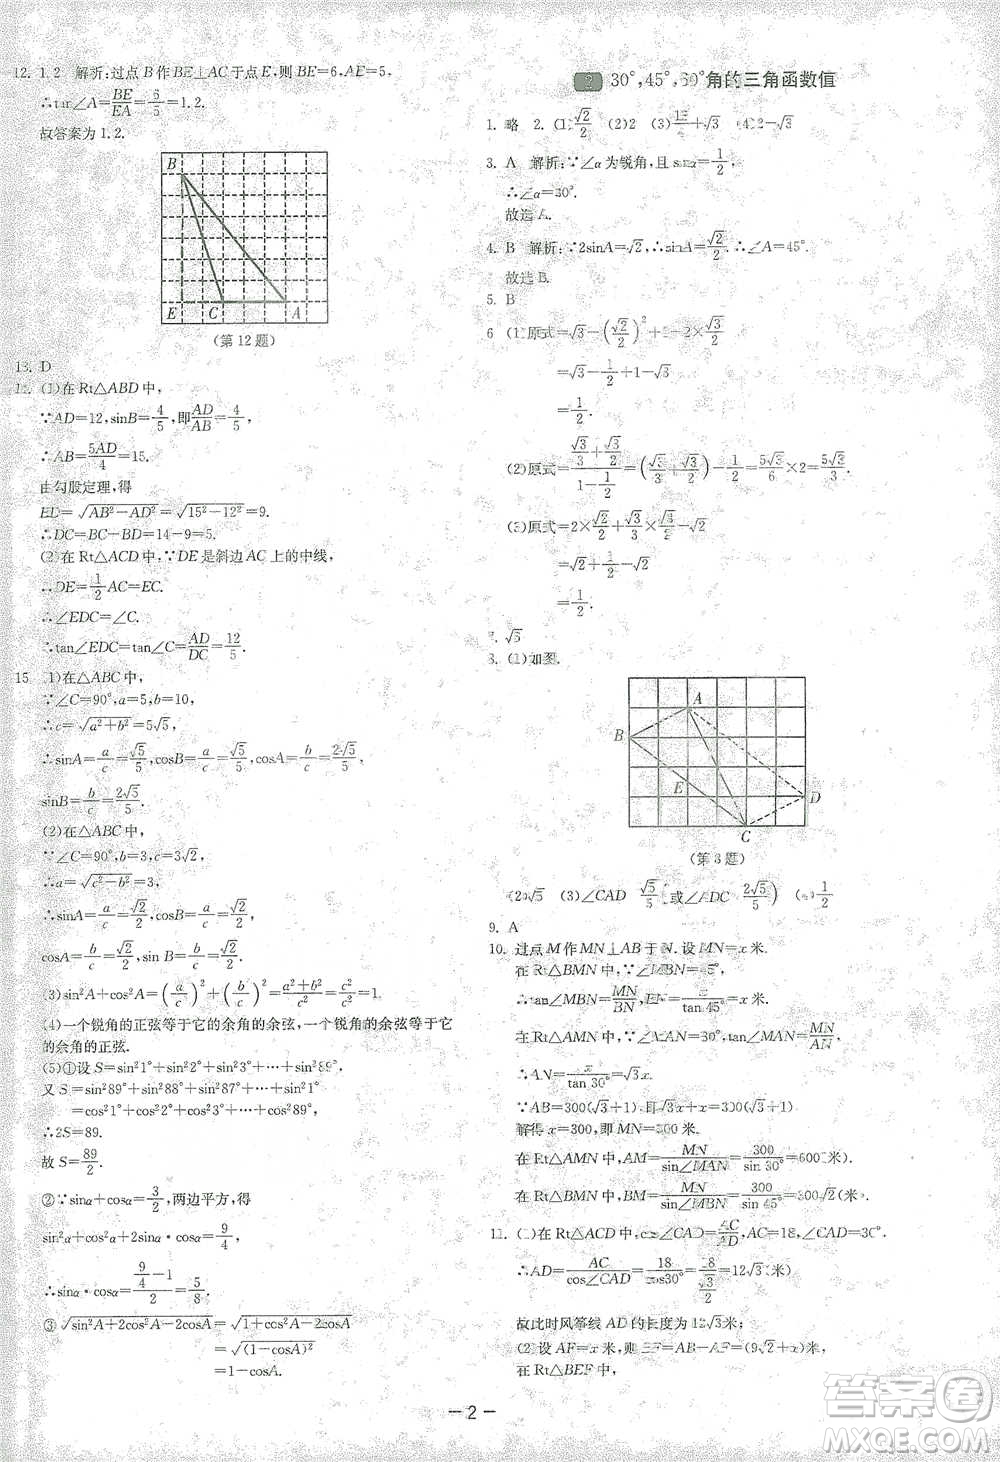 12. 1.2 解析:过点B作BE⊥AC于点E,则BE=6,AE=5,
∴tan∠A=BE/EA=6/5=1.2.
故答案为1.2.
B
E C A
(第12题)
13. D
(1)在Rt△ABD中,
∵AD=12,sinB=4/5,即AD/AB=4/5,
∴AB=5AD/4=15.
由勾股定理,得
=√(AB²-AD²)=√(15²-12²)=9.
∴DC=BC-BD=14-9=5.
(2)在Rt△ACD中,∵DE是斜边AC上的中线,
∴DE=1/2AC=EC.
∴∠EDC=∠C.
∴tan∠EDC=tan∠C=AD/DC=12/5.
15 (1)在△ABC中,
∵∠C=90°,a=5,b=10,
∴c=√(a²+b²)=5√5,
∴sinA=a/c=√5/5,cosB=a/c=√5/5,cosA=b/c=2√5/5,
sinB=b/c=2√5/5.
(2)在△ABC中,
∵∠C=90°,b=3,c=3√2,
∴a=√(c²-b²)=3,
∴sinA=a/c=√2/2,cosB=a/c=√2/2,
cosA=b/c=√2/2,sinB=b/c=√2/2.
(3)sin²A+cos²A=(a/c)²+(b/c)²=(a²+b²)/c²=c²/c²=1.
(4)一个锐角的正弦等于它的余角的余弦,一个锐角的余弦等于它
的余角的正弦.
(5)①设S=sin²1°+sin²2°+sin²3°+⋯+sin²89°,
又S=sin²89°+sin²88°+sin²87°+⋯+sin²1°
=cos²1°+cos²2°+cos²3°+⋯+cos²89°,
∴2S=89.
故S=89/2.
②∵sinα+cosα=3/2,两边平方,得
sin²α+cos²α+2sinα·cosα=9/4,
∴sinα·cosα=(9/4-1)/2=5/8.
③√(sin²A+2cos²A-2cosA)=√(1+cos²A-2cosA)
=√((1-cosA)²)
=1-cosA.
2 30°,45°,60°角的三角函数值
1. 略 2. (1)√2/2 (2)2 (3)+√3 (4)2-√3
3. A 解析:∵∠α为锐角,且sinα=1/2,
∴∠α=30°.
故选A.
4. B 解析:∵2sinA=√2,∴sinA=√2/2,∴∠A=45°.
故选B.
5. B
6 (1)原式=√3-(√2/2)²+1-2×√3/2
=√3-1/2+1-√3
=1/2.
(2)原式=(√3/3+√3/2)/(1-1/2)=(√3/3+√3/2)÷1/2=5√3/6×2=5√3/3.
(3)原式=2×√2/2+√3/2×√3/3-√2
=√2+1/2-√2
=1/2.
7. √3
8. (1)如图.
A
B
E
D
C
(第8题)
(2)√5 (3)∠CAD √5/5(或∠ADC 2√5/5) (4)1/2
9. A
10. 过点M作MN⊥AB于N.设MN=x米.
在Rt△BMN中,∵∠MBN=45°,
∴tan∠MBN=MN/BN,BN=x/tan45°=x.
在Rt△AMN中,∵∠MAN=30°,tan∠MAN=MN/AN,
∴AN=x/tan30°=√3x.
∵AB=300(√3+1),即√3x+x=300(√3+1).
解得x=300,即MN=300米.
在Rt△AMN中,AM=MN/sin∠MAN=300/sin30°=600(米).
在Rt△BMN中,BM=MN/sin∠MBN=300/sin45°=300√2(米).
11. (1)在Rt△ACD中,cos∠CAD=AC/AD,AC=18,∠CAD=30°.
∴AD=AC/cos∠CAD=18/cos30°=18/(√3/2)=12√3(米).
故此时风筝线AD的长度为12√3米;
(2)设AF=x米,则BF=AB-AF=(9√2+x)米,
在Rt△BEF中,
—2—
答案圈
MXQE.COM